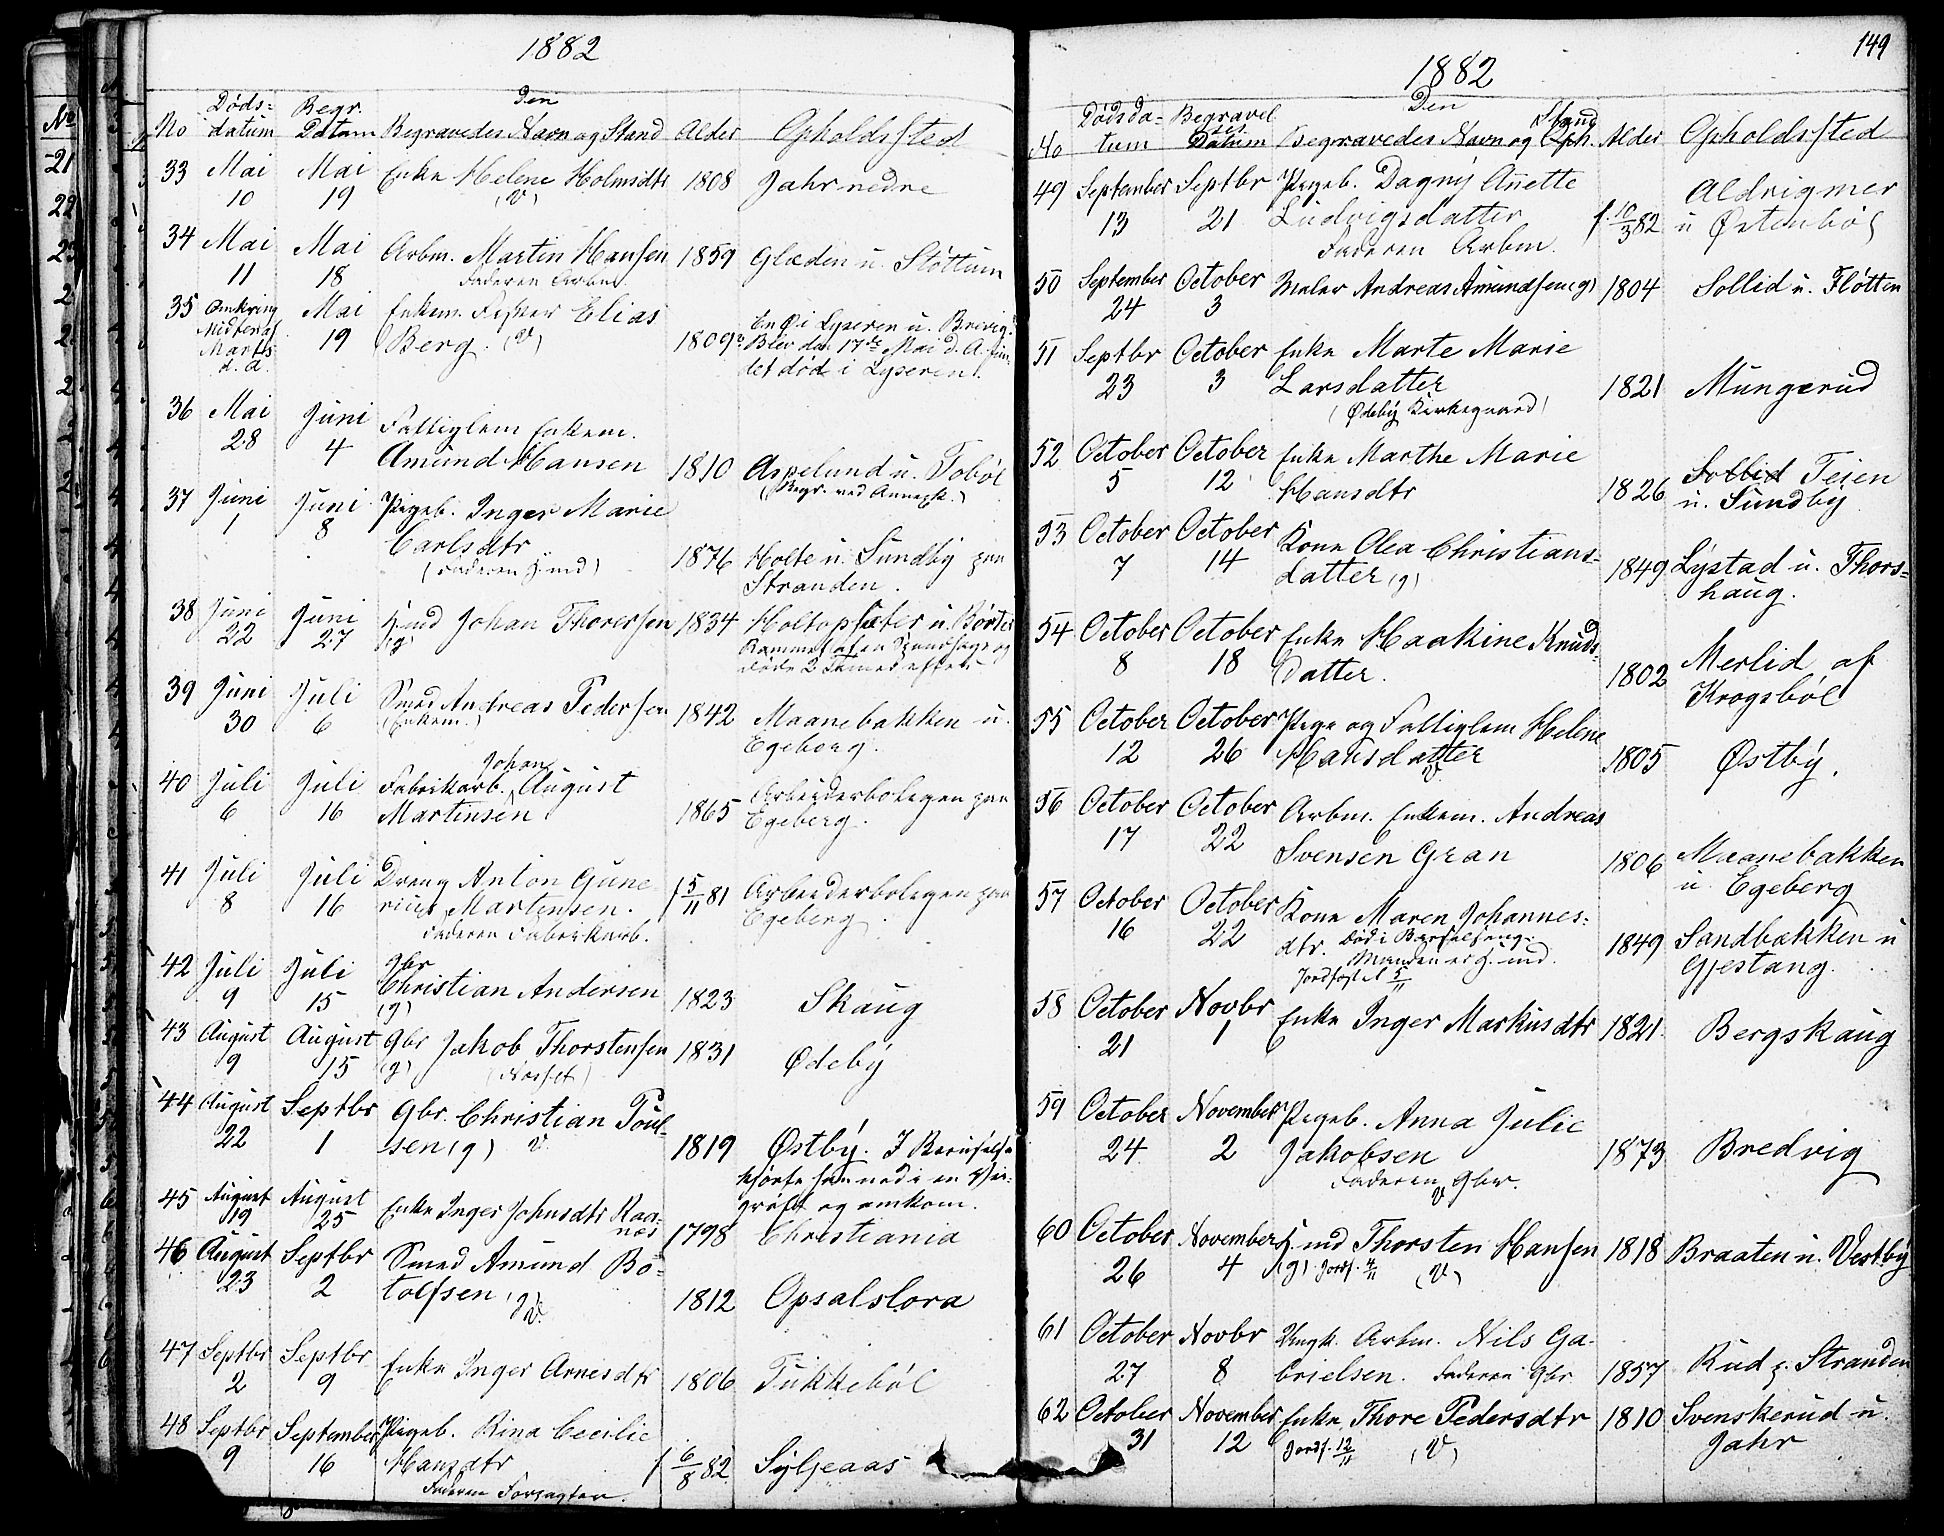 1882
No Døds-datum Begr. Datum Den Begravedes Navn og Stand Alder Opholdssted
33 Mai 10 Mai 19 Enke Helene Holmsdtr (V) 1808 Jahr nedre
34 Mai 11 Mai 18 Arbm. Martin Hansen 1859 Glæden u. Støttum
Faderen Arbm.
35 Omkring Midten af Marts d. A. Mai 19 Enkem. Fisker Elias
Berg. (V) 1809 En Ø i Lyseren u. Brevig.
Blev den 17de Mai d. A. fundet død i Lyseren.
36 Mai 28 Juni 4 Fattiglem Enkem.
Amund Hansen 1810 Aspelund u. Tobøl
(Begr. ved Annexk.)
37 Juni 1 Juni 8 Pigeb. Inger Marie
Carlsdtr 1876 Holte u. Sundby paa
(Faderen H.md) Stranden.
38 Juni 22 Juni 27 H.md Johan Thoresen 1834 Holtopsæter u. Børter
(g)
39 Juni 30 Juli 6 Smed Andreas Pedersen 1842 Maanebakken u.
(Enkem.) Egeberg.
40 Juli 6 Juli 16 Fabrikarb. Johan August
Martinsen 1865 Arbeiderboligen paa
Egeberg.
41 Juli 8 Juli 16 Dreng Anton Gune
rius Martensen. f 5/11 81 Arbeiderboligen paa
Faderen Fabrikarb. Egeberg.
42 Juli 9 Juli 15 Gbr
Christian Andersen 1823 Skaug
(g)
43 August 9 August 15 Gbr Jakob Thorstensen 1831 Ødeby
(g)
44 August 22 Septbr 1 Gbr. Christian Poul-
sen (g) V. 1819 Østby. I Beruselse
kjørte han ned i en
grøft og omkom.
45 August 19 August 25 Enke Inger Johnsdtr Raa-
næs 1798 Christiania
46 August 23 Septbr 2 Smed Amund Bo-
tolfsen, g V. 1812 Opsalslora
47 Septbr 2 Septbr 9 Enke Inger Arnesdtr 1806 Tukkebøl
48 Septbr 9 September 16 Pigeb. Rina Cecilie
Hansdtr f 6/8 82 Syljeaas
Faderen Forpagter.
149
1882
No Dødsdatum Begravelses Datum Den Begravedes Navn og Stand Oph. Alder Opholdssted
49 September 13 Septbr 21 Pigeb. Dagny Anette Aldrigmer
Ludvigsdatter f. 10/3 82 u Østenbøl
Faderen Arbm.
50 September 24 October 3 Maler Andreas Amundsen (g) 1804 Sollid u. Fløtten
51 Septbr 23 October 3 Enke Marte Marie
Larsdatter 1821 Mungerud
(Ødeby Kirkegaard)
52 October 5 October 12 Enke Marthe Marie
Hansdtr 1826 Sollid Teien
u. Sundby
53 October 7 October 14 Kone Olea Christians-
datter (g) 1849 Lystad u. Thors-
haug.
54 October 8 October 18 Enke Haakine Knuds-
datter. 1802 Merlid af
Krogsbøl
55 October 12 October 26 Pige og Fattiglem Helene
Hansdatter V. 1805 Østby.
56 October 17 October 22 Arbm. Enkem. Andreas
Svensen Gran 1806 Maanebakken
u. Egeberg
57 October 16 October 22 Kone Maren Johannes-
dtr. Død i Barselseng. 1849 Sandbækken u
Manden er H.md. Gjestang.
Jordfæstet 5/11
58 October 21 Novbr 1 Enke Inger Markusdtr 1821 Bergskaug
59 October 24 November 2 Pigeb. Anna Julie
Jakobsen 1873 Bredvig
Faderen Gbr.
V
60 October 26 November 4 H.md Thorsten Hansen 1818 Braaten u. Vestby
(g). Jordf. 4/11 (V)
61 October 27 Novbr 8 Ungk. Arbm. Nils Ga-
brielsen. Faderen Gbr 1857 Rud p. Stranden
62 October 31 November 12 Enke Thore Pedersdtr 1810 Svenskerud u.
Jordf. 12/11 (V) Jahr